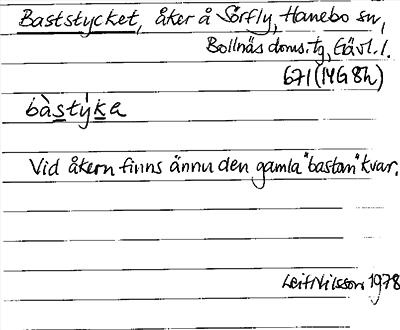 Baststycket, åker å Sörfly, Hanebo sn,
Bollnäs doms. tg, Gävl. l.
671 (14G 8h)
bàstýka
Vid åkern finns ännu den gamla "bastan" kvar.
Leif Nilsson 1978